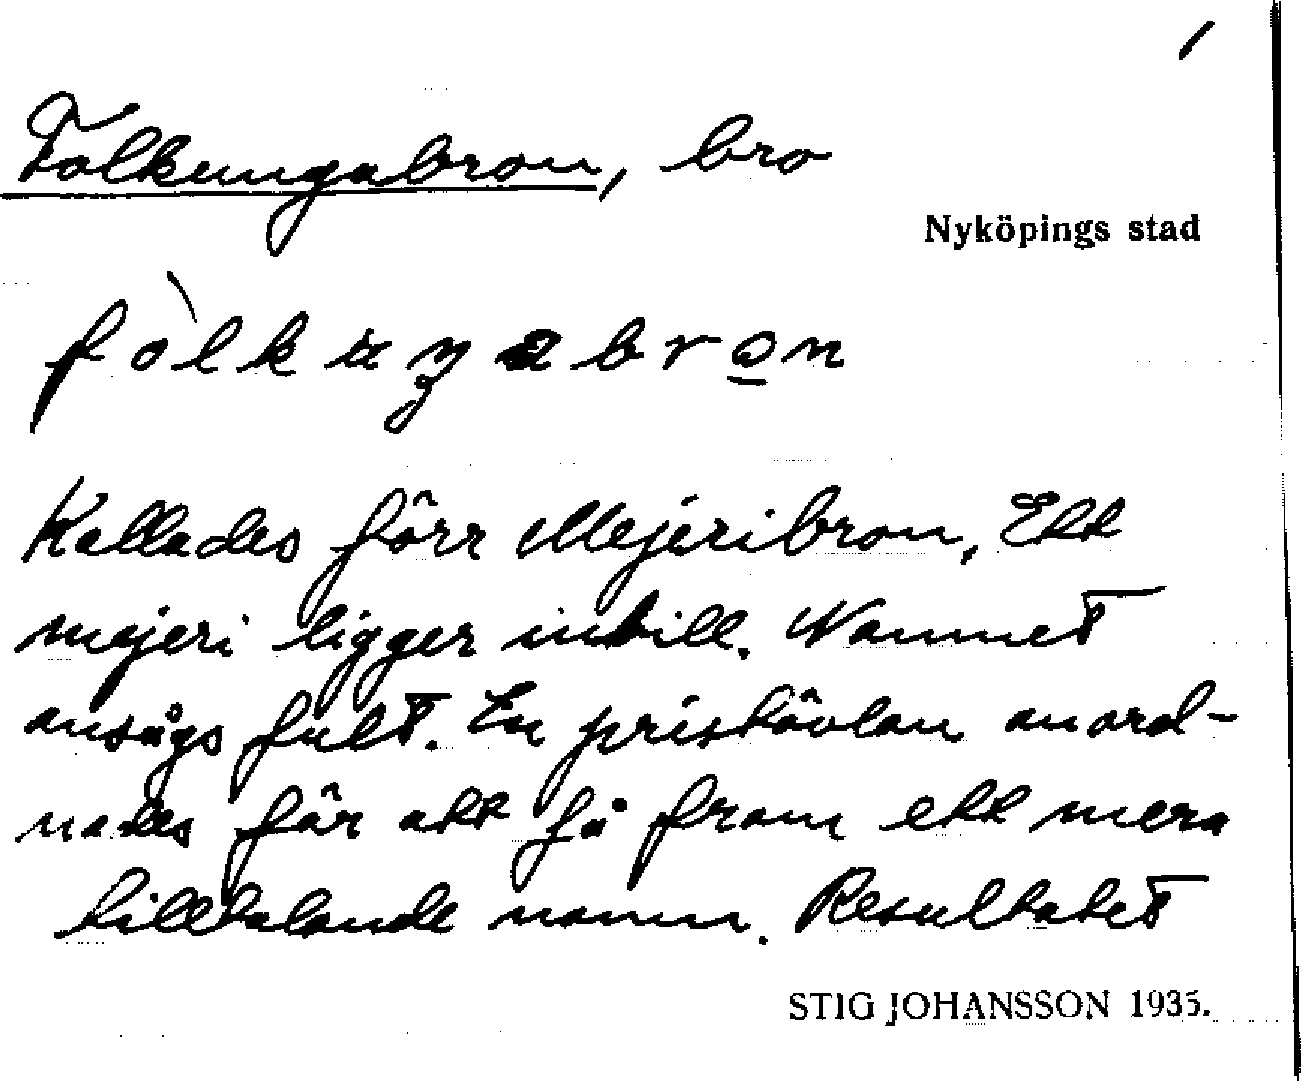 1
Folkungabron, bro
Nyköpings stad
fòlkuŋabro̲n
Kallades förr Mejeribron. Ett
mejeri ligger intill. Namnet
ansågs fult. En pristävlan anord-
nades för att få fram ett mera
tilltalande namn. Resultatet
STIG JOHANSSON 1935.